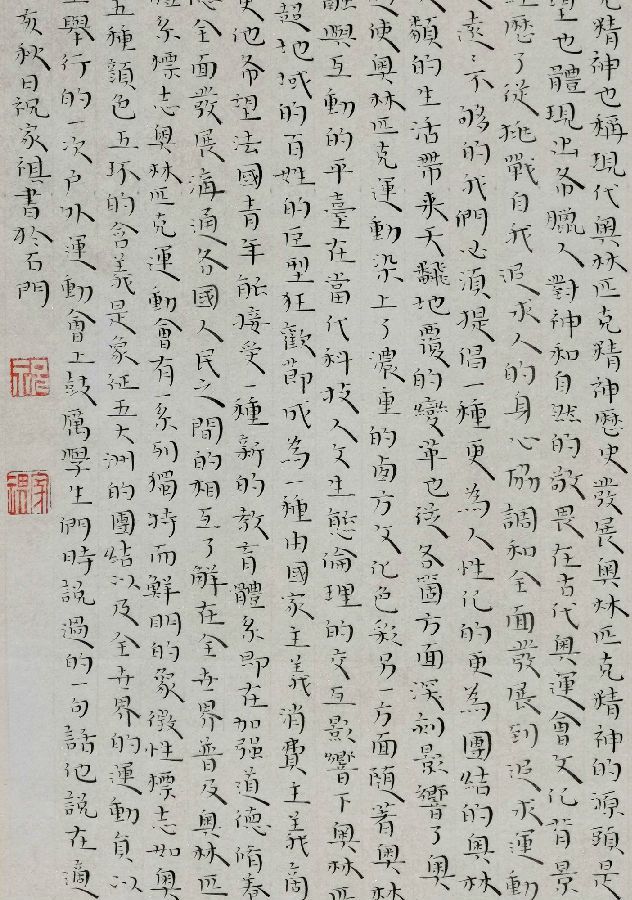 克精神也稱現代奧林匹克精神歷史發展奧林匹克精神的源頭是
望也體現出希臘人對神和自然的敬畏在古代奧運會文化背景
經歷了從挑戰自我追求人的身心協調和全面發展到追求運動
遠遠不够的我們必須提倡一種更為人性化的更為團結的奧林
人類的生活帶来天翻地覆的變革也從各箇方面深刻影響了奧
使奧林匹克運動染上了濃重的西方文化色彩另一方面隨著奧林
融與互動的平臺在當代科技人文生態倫理的交互影響下奧林匹
超地域的百姓的巨型狂歡節成為一種由國家主義消費主義商
更他希望法國青年能接受一種新的教育體系即在加强道德脩養
全面發展溝通各國人民之間的相互了解在全世界普及奧林匹
系標志奧林匹克運動會有一系列獨特而鮮明的象徵性標志如奧
五種顏色五环的含義是象征五大洲的團結以及全世界的運動員以
上舉行的一次户外運動會上鼓厲學生們時說過的一句話他說在適
亥秋日祝家祺書於石門
祝
家祺